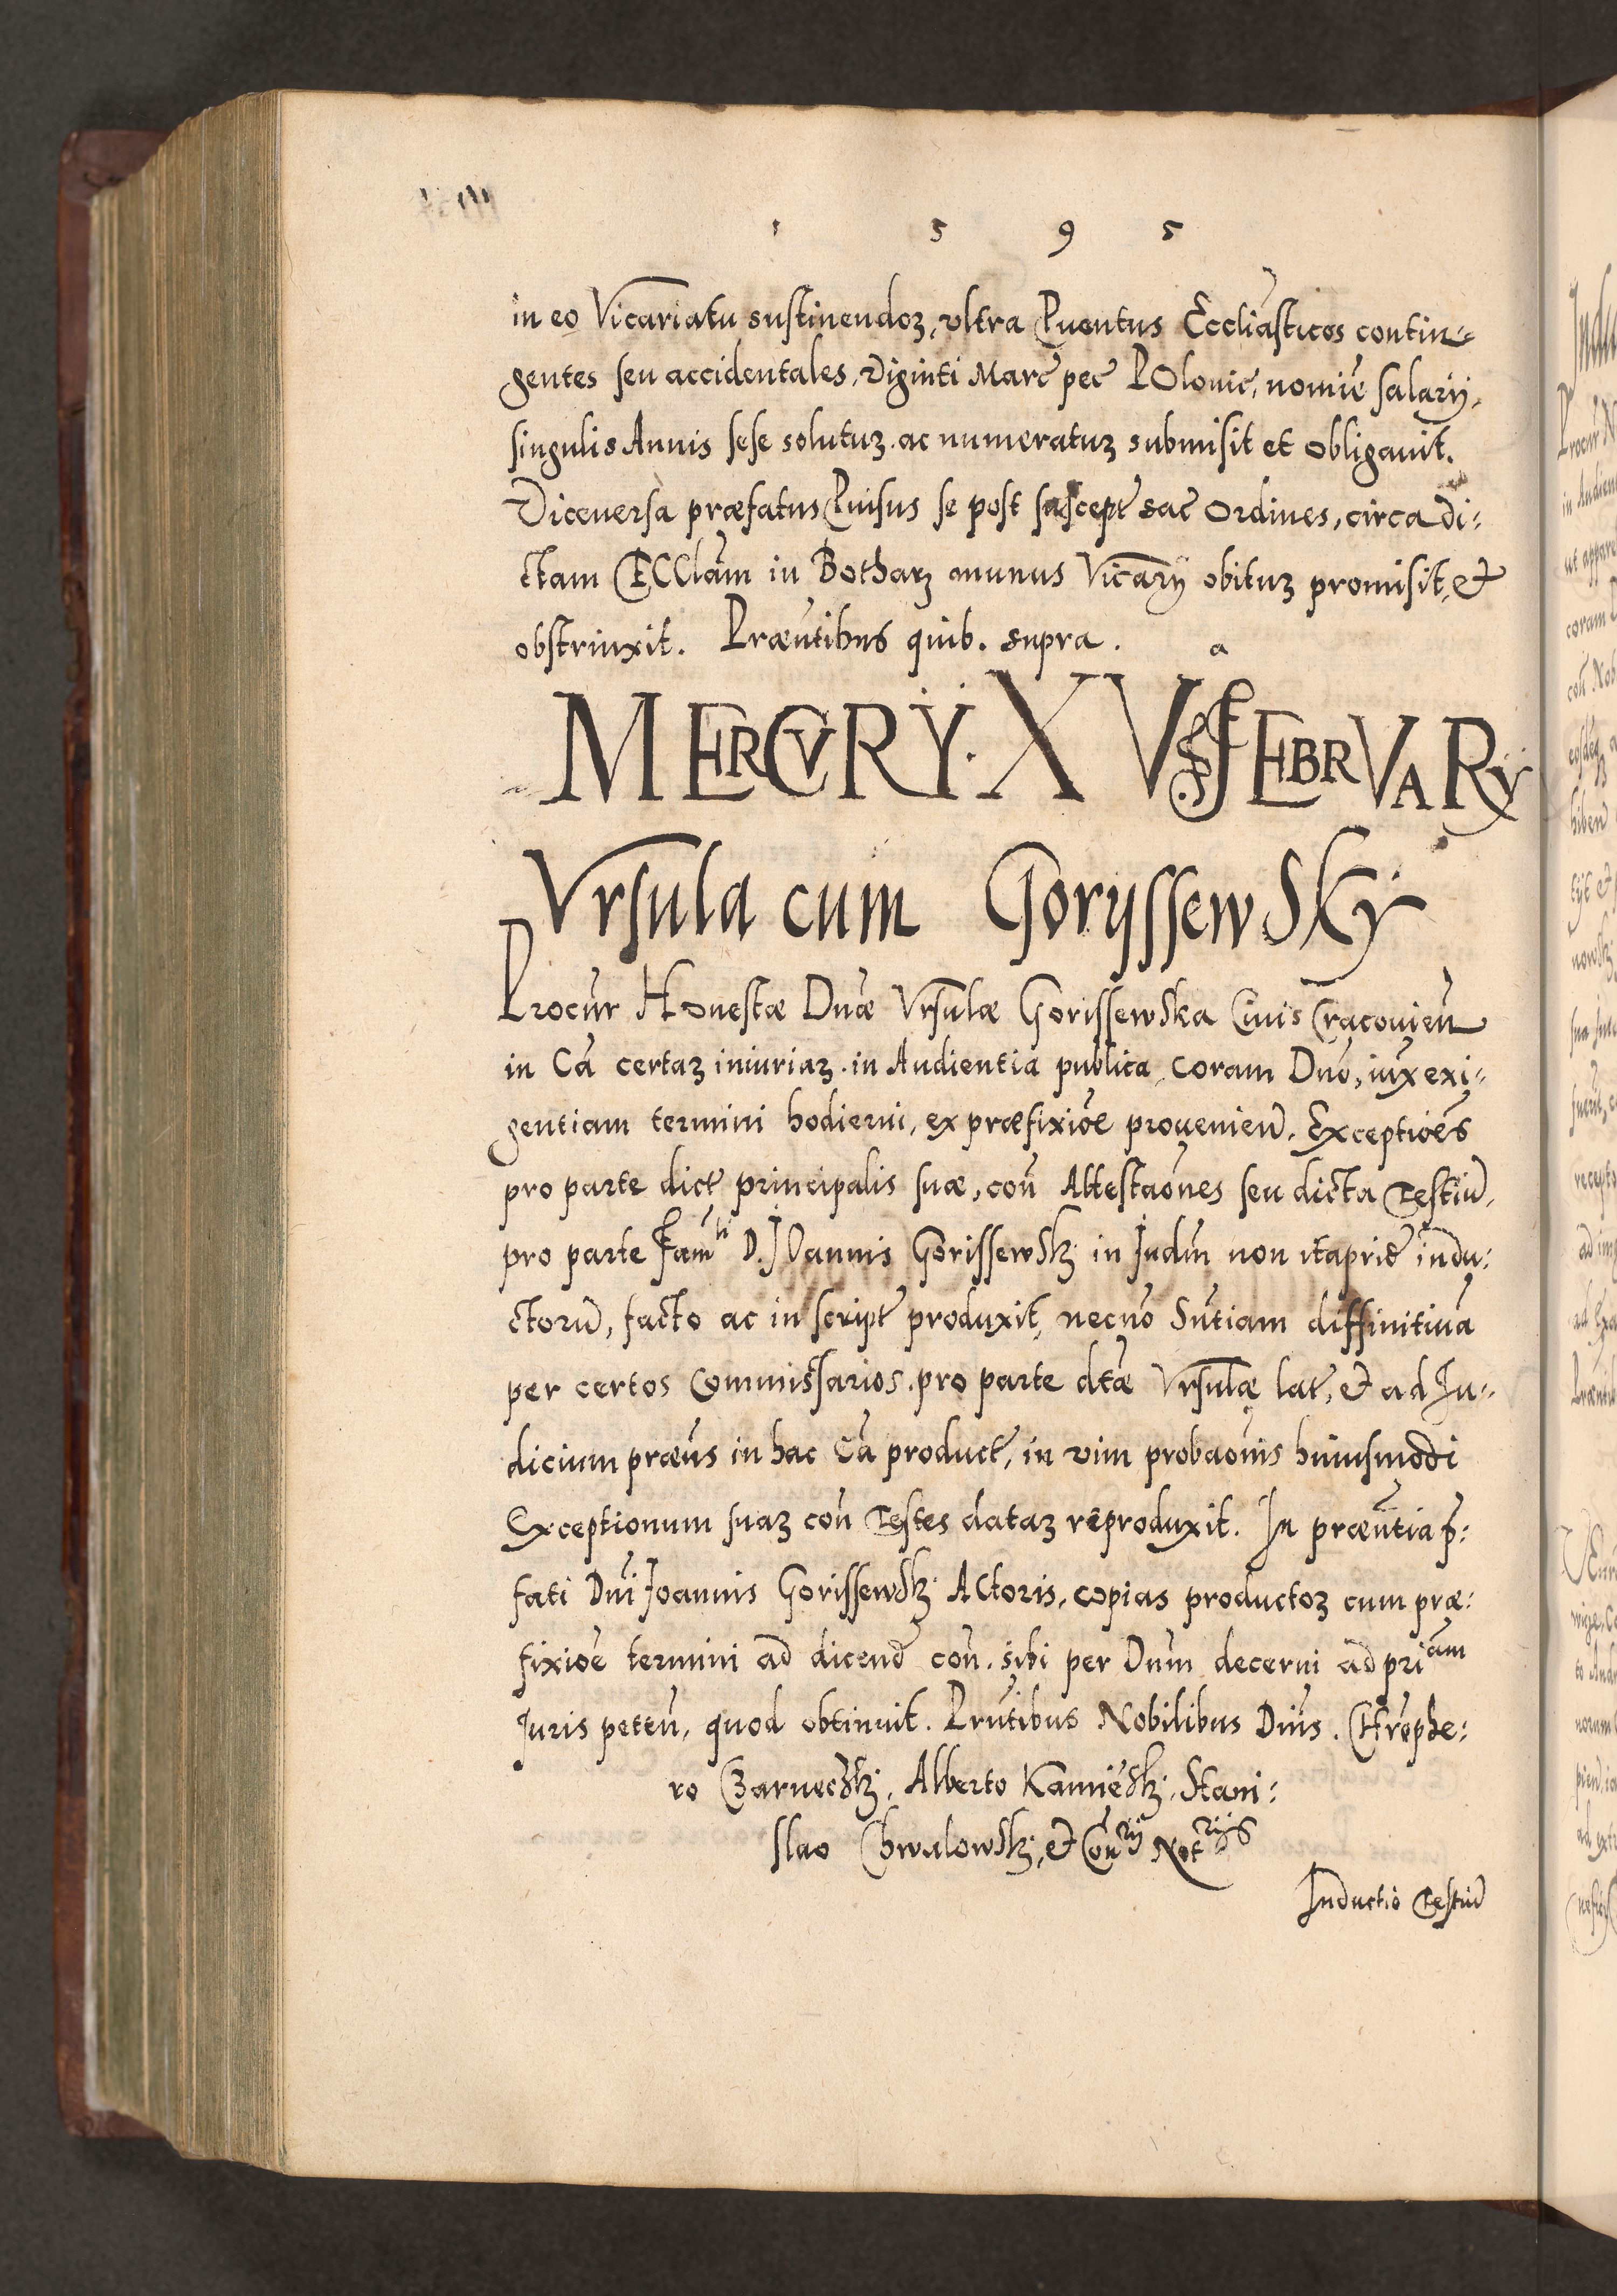 1 5 9 5
in eo Vicariatu sustinendoꝝ, vltra Puentus Eccliasticos contin-
gentes seu accidentales, Viginti Marc̃ pec̃ POlonic̃, nomie salarÿ,
singulis Annis sese solutuꝝ ac numeratuꝝ submisit et obligauit.
Viceuersa præfatus Puisus se post suscept̃ sac̃ Ordines, circa di-
ctam ECClam̃ in Botharꝫ munus Vicarÿ obituꝝ promisit, et
obstrinxit. Præñtibus quib. supra. a
MERCVRŸ. XV FEBRVARŸ
Vrsula cum GorÿssewSkÿ
Procur̃ Honestæ Dnæ Vrsulæ GorissewSka Ciuis Cracouieñ
in Cã certaꝝ iniuriaꝝ in Audientia publica, coram Dnõ, iux exi-
gentiam termini hodierni, ex præfixiõe prouenieñ. Exceptiões
pro parte dict̃ principalis suæ, coñ Attestaões seu dicta Testiũ,
pro parte Fam̃li D. JOannis GorissewSkꝫ in Iudm̃ non itaprid̃ indu-
ctorũ, facto ac in script̃ produxit, necnõ Sñtiam diffinitiuã
per certos Commissarios pro parte dtæ Vrsulæ lat̃, et ad Iu-
dicium præñs in hac Cã product̃, in vim probaõnis huiusmodi
Exceptionum suaꝝ coñ Testes dataꝝ reproduxit. In præñtia p̃-
fati Dni Joannis GorissewSkꝫ ACtoris, copias productoꝝ cum præ-
fixiõe termini ad dicend̃ coñ. sibi per Dnm̃ decerni ad priam
Juris peteñ, quod obtinuit. Prñtibus Nobilibus Dñis. CHrophe-
ro CzarnecSkꝫ, Alberto KamieSkꝫ, Stani-
slao ChwalowSkꝫ, et Coñrÿ Notrijs
Inductio Testiũ